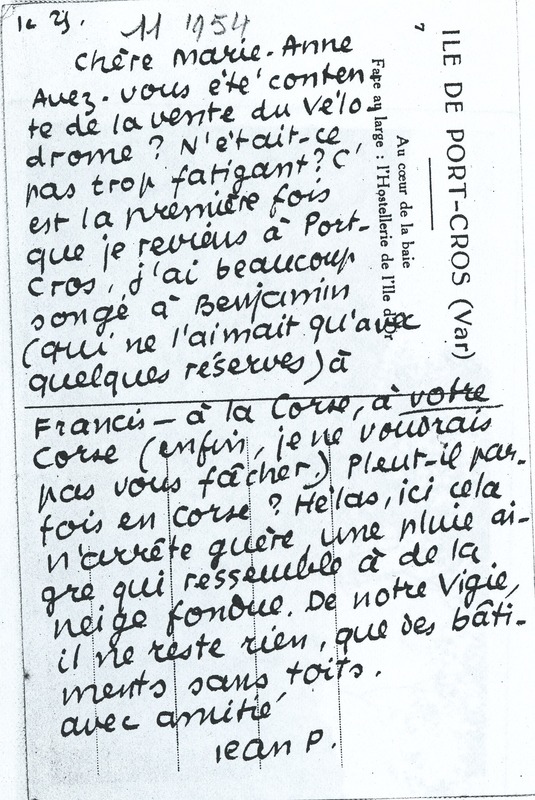 le 25.
11 1954
Chère Marie-Anne
Avez-vous été conten-
te de la vente du Vélo-
drome ? N'était-ce
pas trop fatigant ? C'
est la première fois
que je reviens à Port-
Cros, j'ai beaucoup
songé à Benjamin
(qui ne l'aimait qu'avec
quelques réserves) à
Francis — à la Corse, à votre
Corse (enfin, je ne voudrais
pas vous fâcher.) Pleut-il par-
fois en Corse ? Hélas, ici cela
n'arrête guère une pluie ai-
gre qui ressemble à de la
neige fondue. De notre Vigie,
il ne reste rien, que des bâti-
ments sans toits.
avec amitié
Jean P.
7
ILE DE PORT-CROS (Var)
Au cœur de la baie
Face au large : l'Hostellerie de l'Ile d'Or